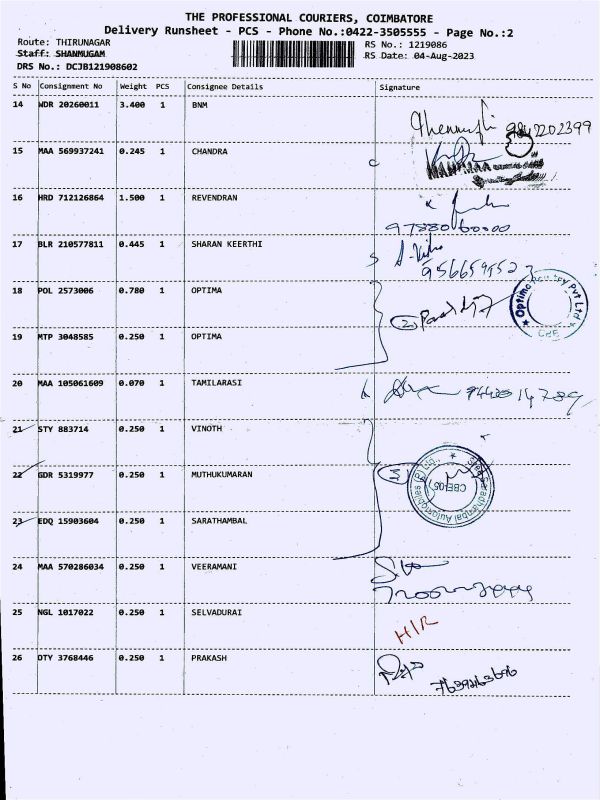 THE PROFESSIONAL COURIERS, COIMBATORE
Delivery Runsheet - PCS - Phone No.:0422-3505555 - Page No.:2
Route: THIRUNAGAR
RS No.: 1219086
Staff: SHANMUGAM
RS Date: 04-Aug-2023
DRS No.: DCJB121908602
S No Consignment No Weight PCS Consignee Details Signature
14 WDR 20260011 3.400 1 BNM
9847202399
15 MAA 569937241 0.245 1 CHANDRA
16 HRD 712126864 1.500 1 REVENDRAN
9788060000
17 BLR 210577811 0.445 1 SHARAN KEERTHI
18 POL 2573006 0.780 1 OPTIMA
19 MTP 3048585 0.250 1 OPTIMA
20 MAA 105061609 0.070 1 TAMILARASI
21 STY 883714 0.250 1 VINOTH
22 GDR 5319977 0.250 1 MUTHUKUMARAN
23 EDQ 15903604 0.250 1 SARATHAMBAL
24 MAA 570286034 0.250 1 VEERAMANI
25 NGL 1017022 0.250 1 SELVADURAI
H/R
26 OTY 3768446 0.250 1 PRAKASH